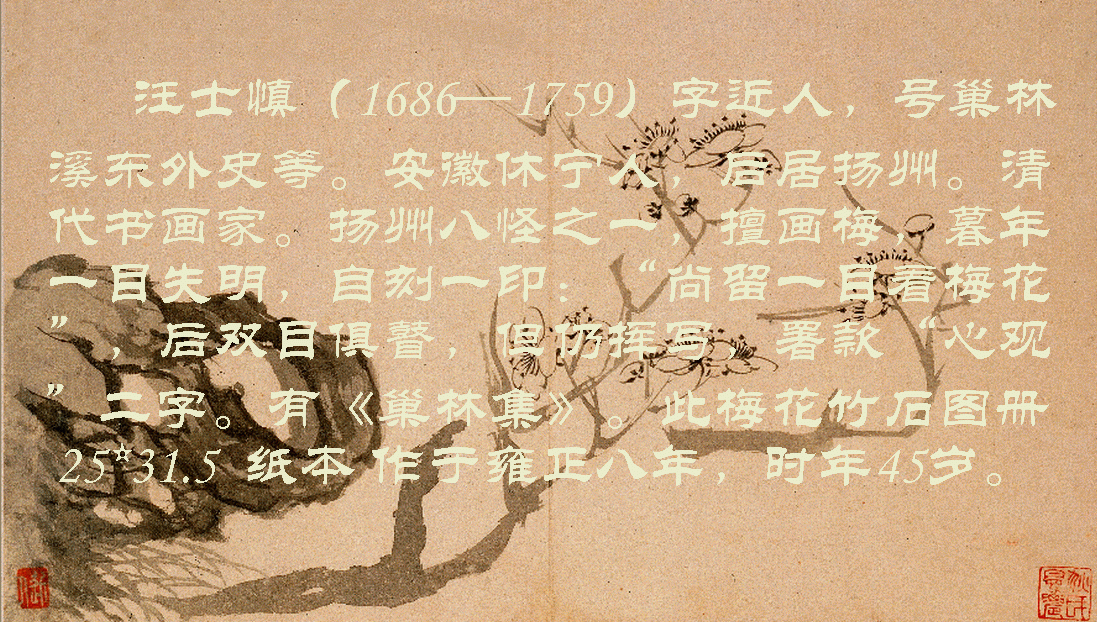 汪士慎（1686—1759）字近人，号巢林
溪东外史等。安徽休宁人，后居扬州。清
代书画家。扬州八怪之一，擅画梅，暮年
一目失明，自刻一印：“尚留一目着梅花
”，后双目俱瞽，但仍挥写，署款“心观
”二字。有《巢林集》。此梅花竹石图册
25*31.5 纸本 作于雍正八年，时年45岁。